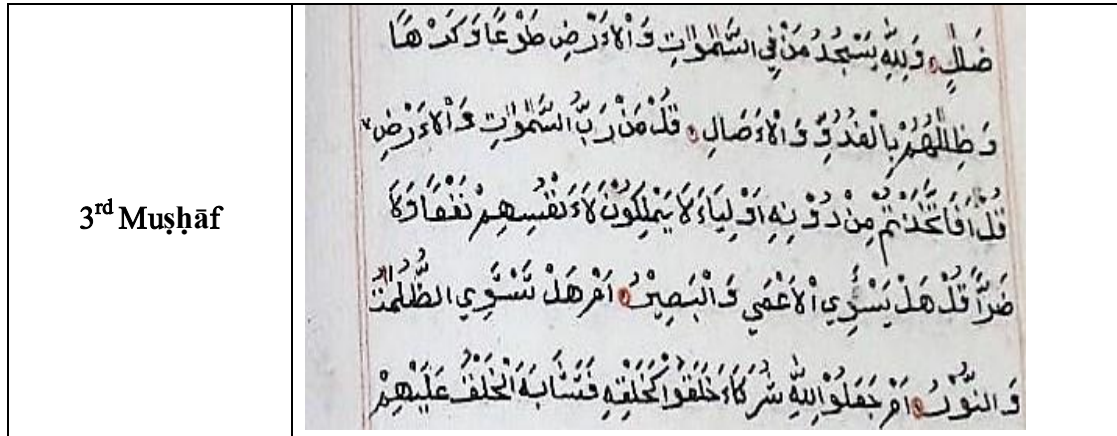 3rd Muṣḥāf
ضَلٰلٍ وَلِلّٰهِ يَسْجُدُ مَنْ فِي السَّمٰوٰتِ وَالْاَرْضِ طَوْعًا وَكَرْهًا
وَظِلٰلُهُمْ بِالْغُدُوِّ وَالْاٰصَالِ قُلْ مَنْ رَبُّ السَّمٰوٰتِ وَالْاَرْضِ
قُلْ اَفَاتَّخَذْتُمْ مِنْ دُوْنِهِ اَوْلِيَاءَ لَا يَمْلِكُوْنَ لِاَنْفُسِهِمْ نَفْعًا وَلَا
ضَرًّا قُلْ هَلْ يَسْتَوِي الْاَعْمَي وَالْبَصِيْرُ اَمْ هَلْ تَسْتَوِي الظُّلُمٰتُ
وَالنُّوْرُ اَمْ جَعَلُوْا لِلّٰهِ شُرَكَاءَ خَلَقُوْا كَخَلْقِهِ فَتَشَابَهَ الْخَلْقُ عَلَيْهِمْ